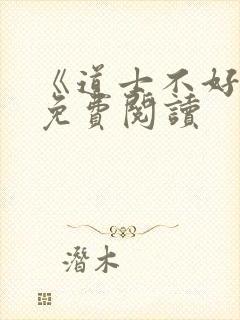 《道士不好
免費閱讀
潛木